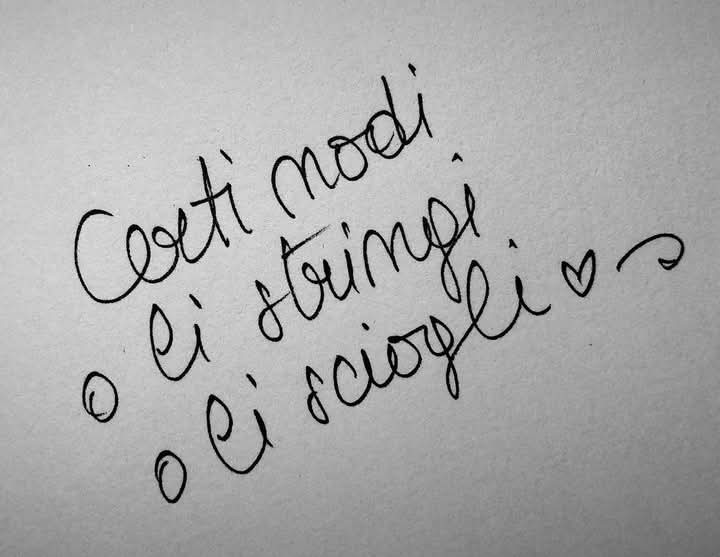 Certi nodi
o li stringi
o li sciogli ♡